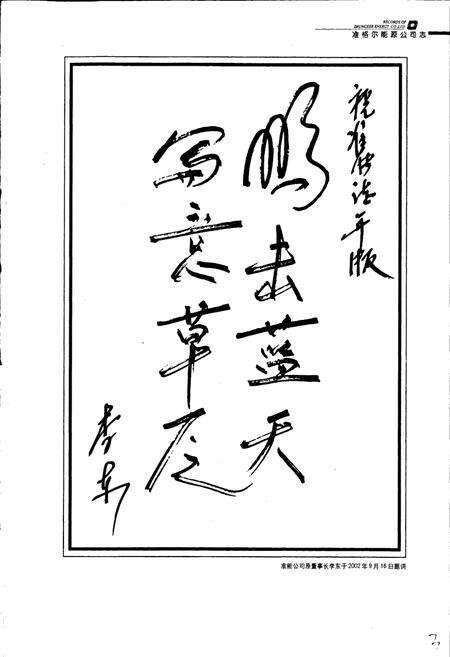 RECORDS OF
ZHUNGEER ENERGY CO.,LTD
准格尔能源公司志
祝准能志年版
鹏击蓝天
写意草原
李东
准能公司原董事长李东于2002年9月16日题词